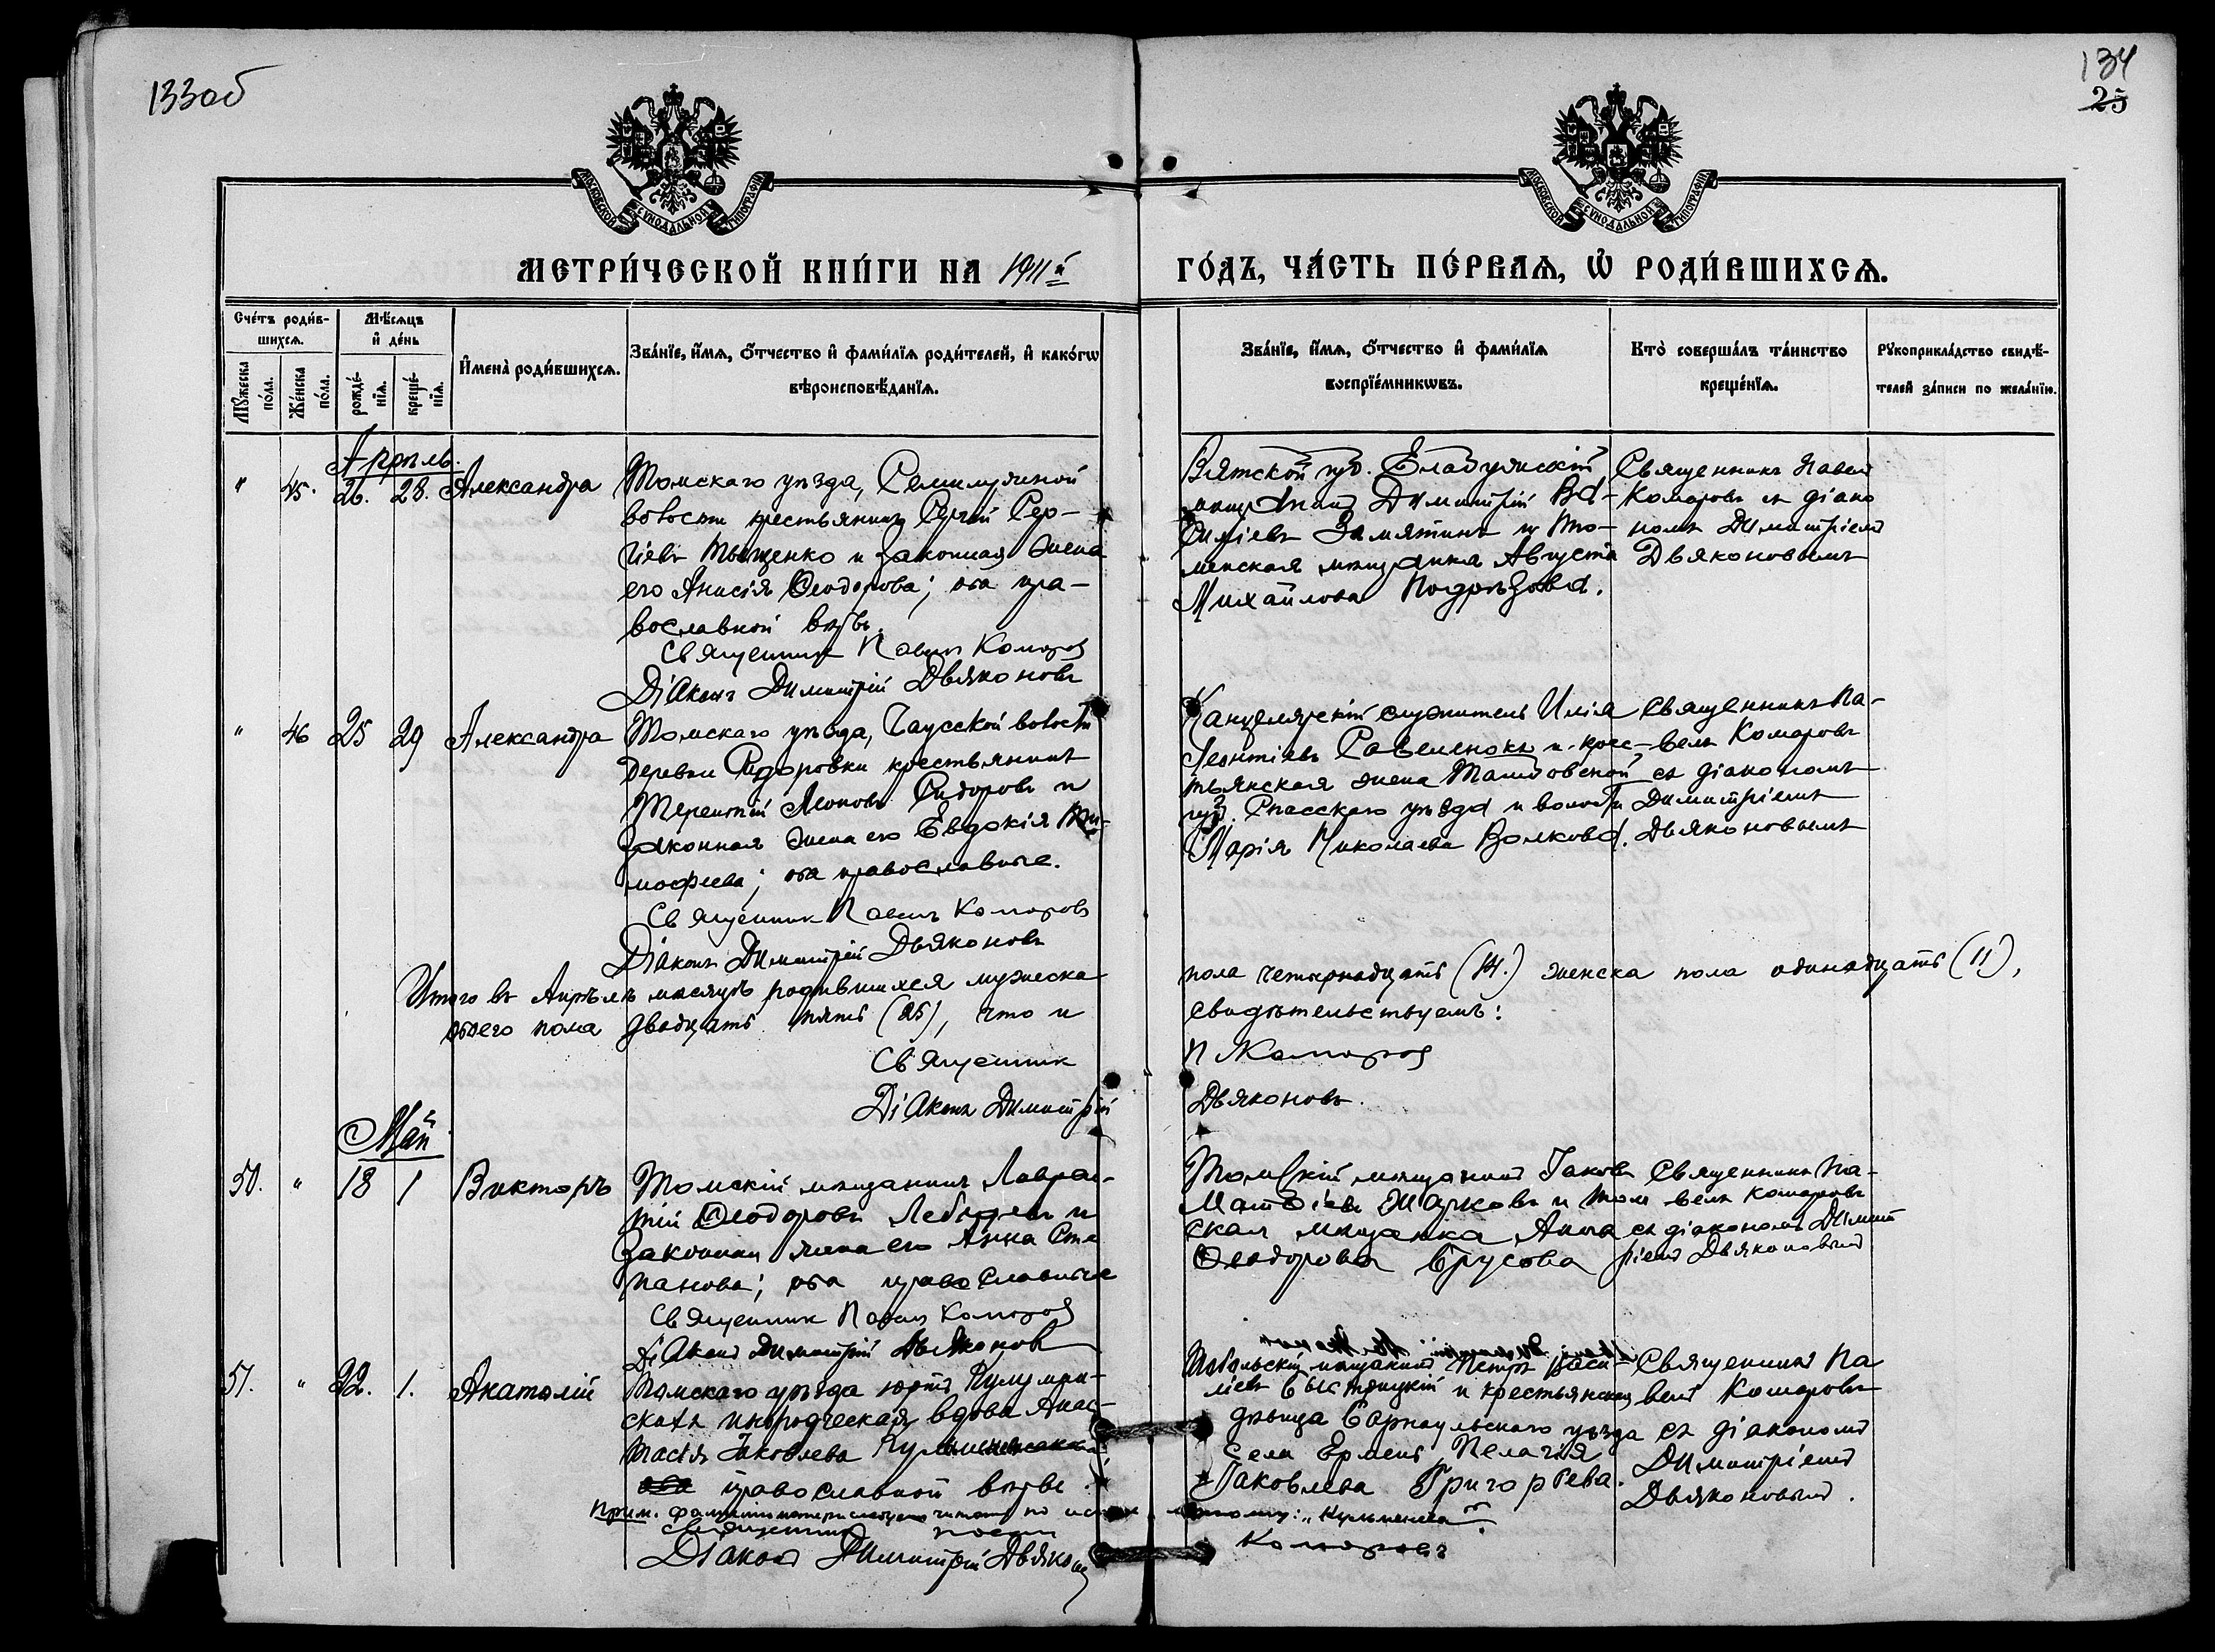 133об
134
25
МОСКОВСКОЙ СѴНОДАЛЬНОЙ ТИПОГРАФІИ
МОСКОВСКОЙ СѴНОДАЛЬНОЙ ТИПОГРАФІИ
МЕТРИ́ЧЕСКОЙ КНИ́ГИ НА 1911й
ГО́ДЪ, ЧА́СТЬ ПЕ́РВАѦ, Ѡ҆ РОДИ́ВШИХСѦ.
Сче́тъ роди́в-
шихсѧ.
Мꙋ́жеска по́ла.
Же́нска по́ла.
Мѣ́сѧцъ
и҆ де́нь
рожде́-
нїѧ.
креще́-
нїѧ.
И҆мена̀ роди́вшихсѧ.
Зва́нїе, и҆́мѧ, ѻ҆́тчество и҆ фами́лїѧ роди́телей, и҆ како́гѡ
вѣроисповѣ́данїѧ.
Зва́нїе, и҆́мѧ, ѻ҆́тчество и҆ фами́лїѧ
воспрїе́мникѡвъ.
Кто̀ соверша́лъ та́инство
креще́нїѧ.
Рꙋкоприкла́дство свидѣ́-
телей за́писи по жела́нїю.
Апрѣль.
" 45. 26. 28. Александра
Томскаго уѣзда, Семилужной
волости крестьянинъ Сергій Сер-
гіевъ Тыщенко и законная жена
его Анисія Ѳеодорова; оба пра-
вославной вѣры.
Священникъ Павелъ Комаровъ
Діаконъ Димитрій Дьяконовъ
Вятской губ. Елабужскій
мѣщанинъ Димитрій Ва-
силіевъ Замятинъ и То-
менская мѣщанка Августа
Михайлова Подрѣзова.
Священникъ Павелъ
Комаровъ съ діако
номъ Димитріемъ
Дьяконовымъ
" 46 25 29 Александра
Томскаго уѣзда, Чаусской волости
деревни Сидоровки крестьянинъ
Терентій Леоновъ Сидоровъ и
законная жена его Евдокія Ти-
мофеева; оба православные.
Священникъ Павелъ Комаровъ
Діаконъ Димитрій Дьяконовъ
Канцелярскій служитель Илія
Леонтіевъ и крес-
тьянская жена Тамбовской
губ. Спасскаго уѣзда и волости
Марія Николаева Волкова.
Священникъ Па-
велъ Комаровъ
съ діакономъ
Димитріемъ
Дьяконовымъ
Итого въ Апрѣлѣ мѣсяцѣ родившихся мужеска
пола четырнадцать (14.) женска пола одинадцать (11),
обоего пола двадцать пять (25), что и
свидѣтельствуемъ:
Священникъ
П Комаровъ
Діаконъ Димитрій
Дьяконовъ.
Май
50. " 18 1 Викторъ
Томскій мѣщанинъ Лаврен-
тій Ѳеодоровъ Лебедевъ и
законная жена его Анна Сте
панова; оба православные
Священникъ Павелъ Комаровъ
Діаконъ Димитрій Дьяконовъ
Томскій мѣщанинъ Іаковъ
Матѳіевъ Жарковъ и Том
ская мѣщанка Анна
Ѳеодорова Брусова
Священникъ Па-
велъ Комаровъ
съ діакономъ Димит
ріемъ Дьяконовымъ
51. " 22. 1. Анатолій
Томскаго уѣзда юртъ
скихъ инородческая вдова Анас-
тасія Іаковлева
оба православной вѣры.
Прим. фамилію матери слѣдуетъ читать по
: "Кульменева".
Священникъ Павелъ
Комаровъ
Діаконъ Димитрій Дьяконовъ
Тобольскій мѣщанинъ Петръ Васи-
ліевъ Быстрицкій и крестьянская
дѣвица Барнаульскаго уѣзда
села Ермени Пелагія
Іаковлева Григорьева.
Священникъ Па
велъ Комаровъ
съ діакономъ
Димитріемъ
Дьяконовымъ.